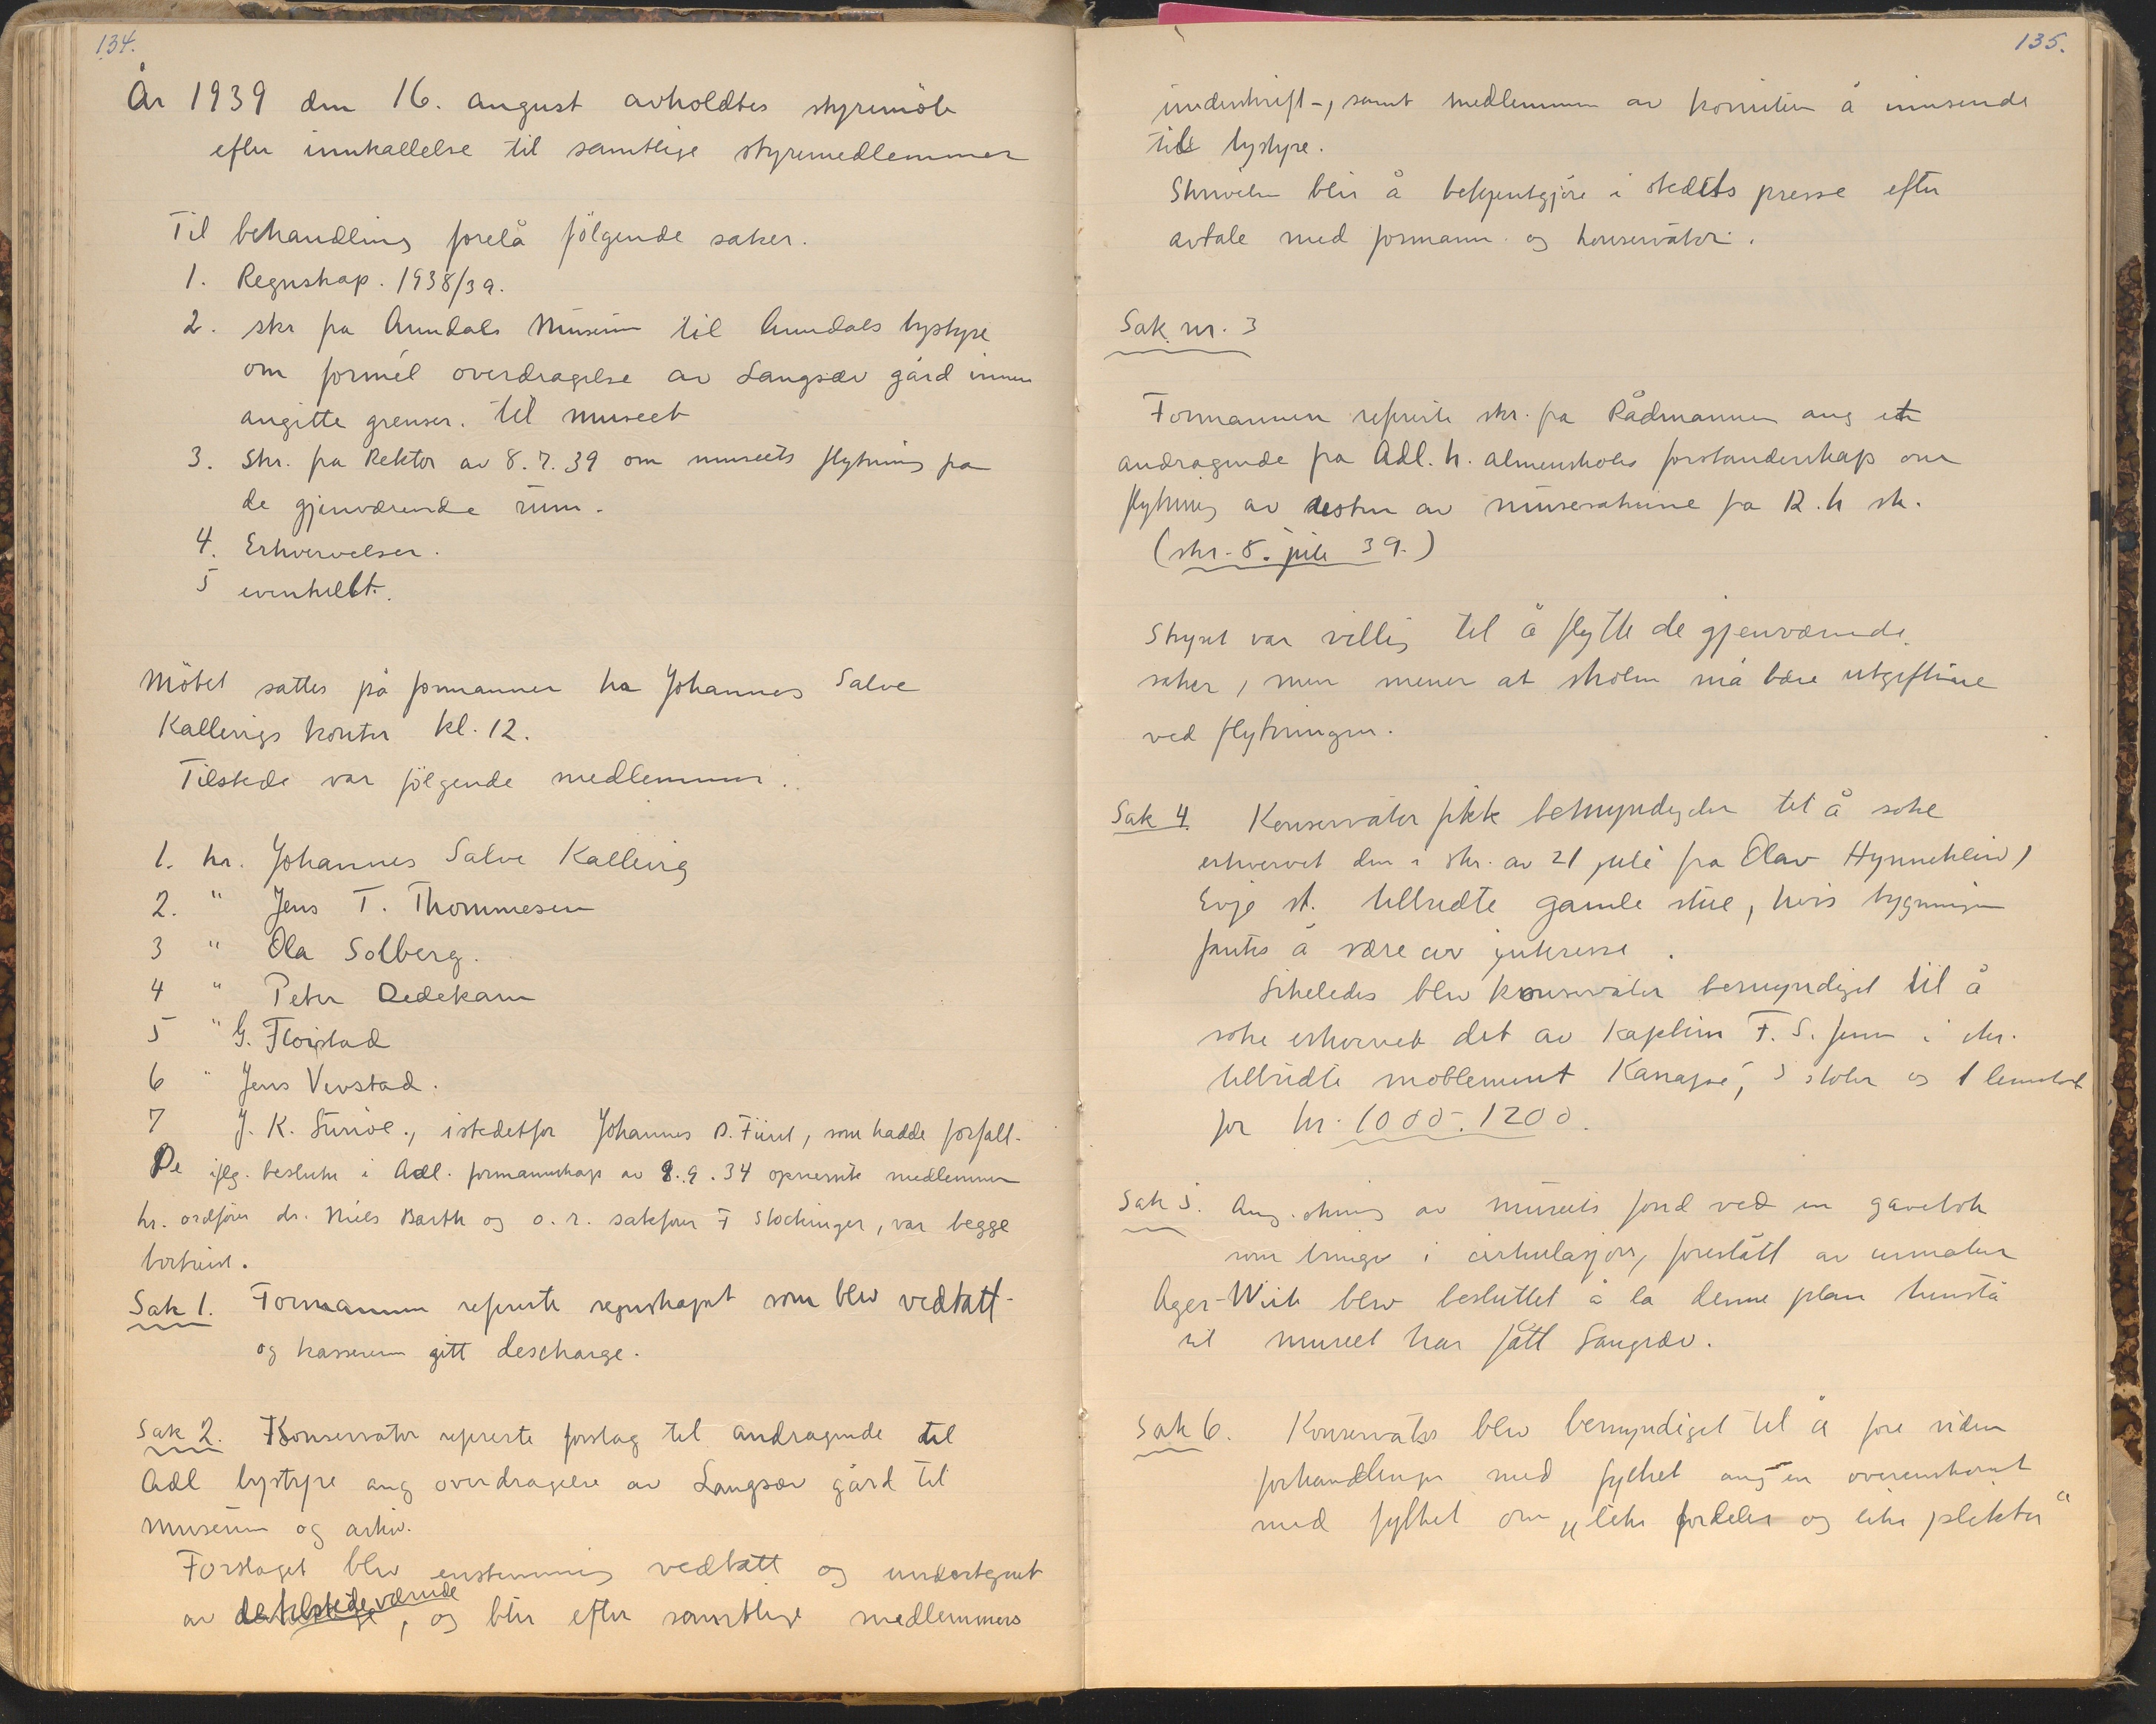 134.
År 1939 den 16. august avholdtes styremöte
efter innkallelse til samtlige styremedlemmer
Til behandling forelå fölgende saker.
1. Regnskap. 1938/39.
2. skr fra Arendals Museum til Arendals bystyre
om formèl overdragelse av Langsæv gård innen
angitte grenser. til museet
3. Skr. fra Rektor av 8.7.39 om museets flytning fra
de gjenværende rum.
4. Erhvervelser.
5 eventuelt.
Mötet sattes på formannen hr Johannes Salve
Kallevigs kontor kl. 12.
Tilstede var fölgende medlemmer.
1. hr. Johannes Salve Kallevig
2. " Jens T. Thommesen
3 " Ola Solberg.
4 " Peter Dedekam
5 " G. Flöistad
6 " Jens Vevstad.
7 J. K. , istedetfor Johannes D. Fürst, som hadde forfall.
De iflg. beslutn i Adl. formannskap av 8.9.34 opnevnte medlemmer
hr. ordförer dr. Niels Barth og o. r. sakförer F Stockinger, var begge
bortreist.
Sak 1. Formannen refererte regnskapet som blev vedtatt
og kasserern gitt descharge.
Sak 2. Konservator refererte forslag til andragende til
Adl bystyre ang overdragelse av Langsæv gård til
museum og arkiv.
Forslaget blev enstemmig vedtatt og undertegnet
av de tilstedeværende, og blir efter samtlige medlemmers
135.
underskrift-, samt medlemmer av komiteen å innsende
til bystyre.
Skrivelsen blir å bekjentgjöre i stedets presse efter
avtale med formann og konservator.
Sak nr. 3
Formannen refererte skr. fra Rådmannen ang et
andragende fra Adl. h. almenskoles forstanderskap om
flytning av resten av museumssakene fra R. h sk.
(skr. 8. juli 39.)
Styret var villig til å flytte de gjenværende
saker, men mener at skolen må bære utgiftene
ved flytningen.
Sak 4 Konservator fikk bemyndigelse til å söke
erhvervet den i skr. av 21 juli fra Olav Hynnekleiv,
Evje st. tilbudte gamle stue, hvis bygningen
fantes å være av interesse.
Likeledes blev konservator bemyndiget til å
söke erhvervet det av kaptein F. S. i skr.
tilbudte möblement Kanapé, 5 stoler og 1 lenestol
for kr. 1000-1200.
Sak 5. Ang. ökning av museets fond ved en gavebok
som bringes i cirkulasjon, foreslått av
Ager-Wick blev besluttet å la denne plan henstå
til museet har fått Langsæv.
Sak 6. Konservator blev bemyndiget til å före videre
forhandlinger med fylket ang en overenskomst
med fylket om „like fordeler og like plikter“